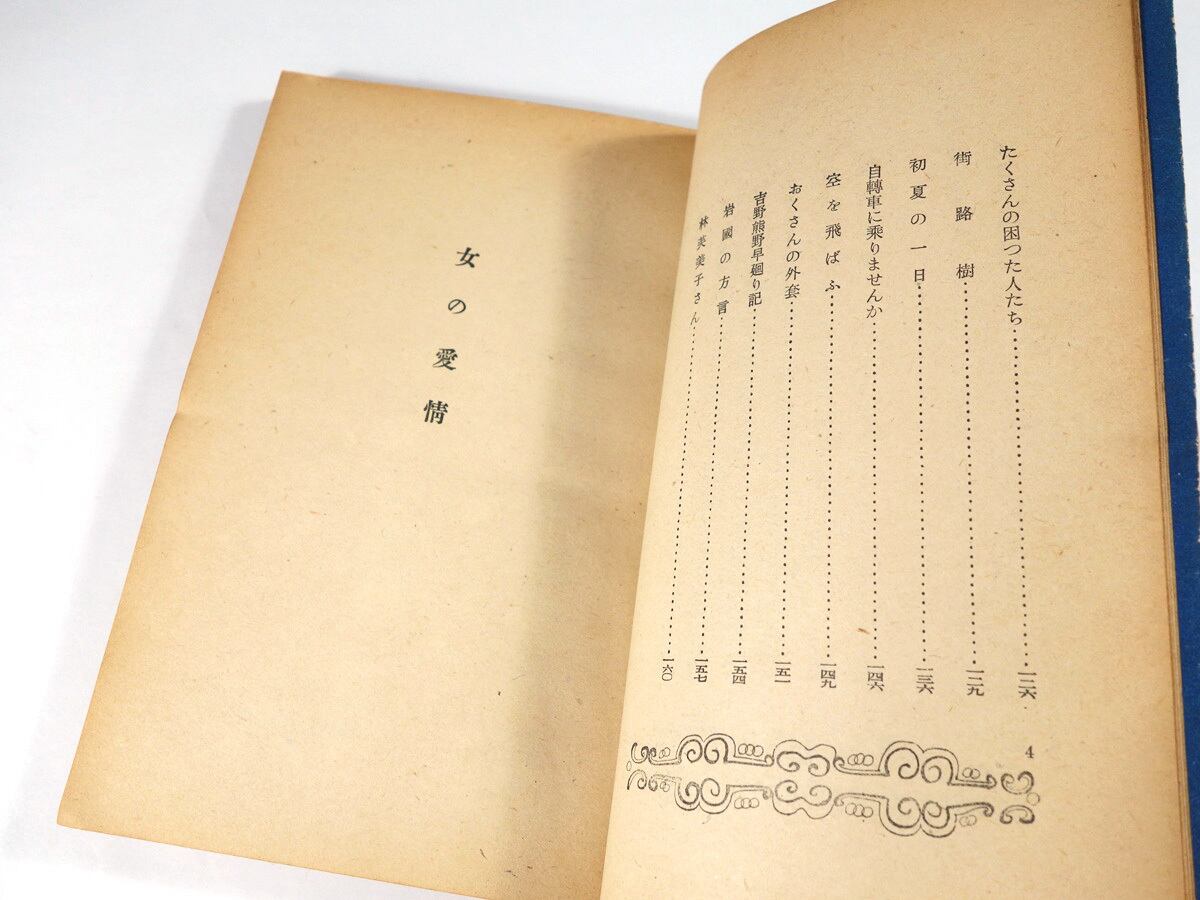 たくさんの困つた人たち……一二六
街路樹……一二九
初夏の一日……一三六
自轉車に乘りませんか……一四六
空を飛ばふ……一四九
おくさんの外套……一五一
吉野熊野早廻り記……一五四
岩國の方言……一五七
林芙美子さん……一六〇
4
女の愛情